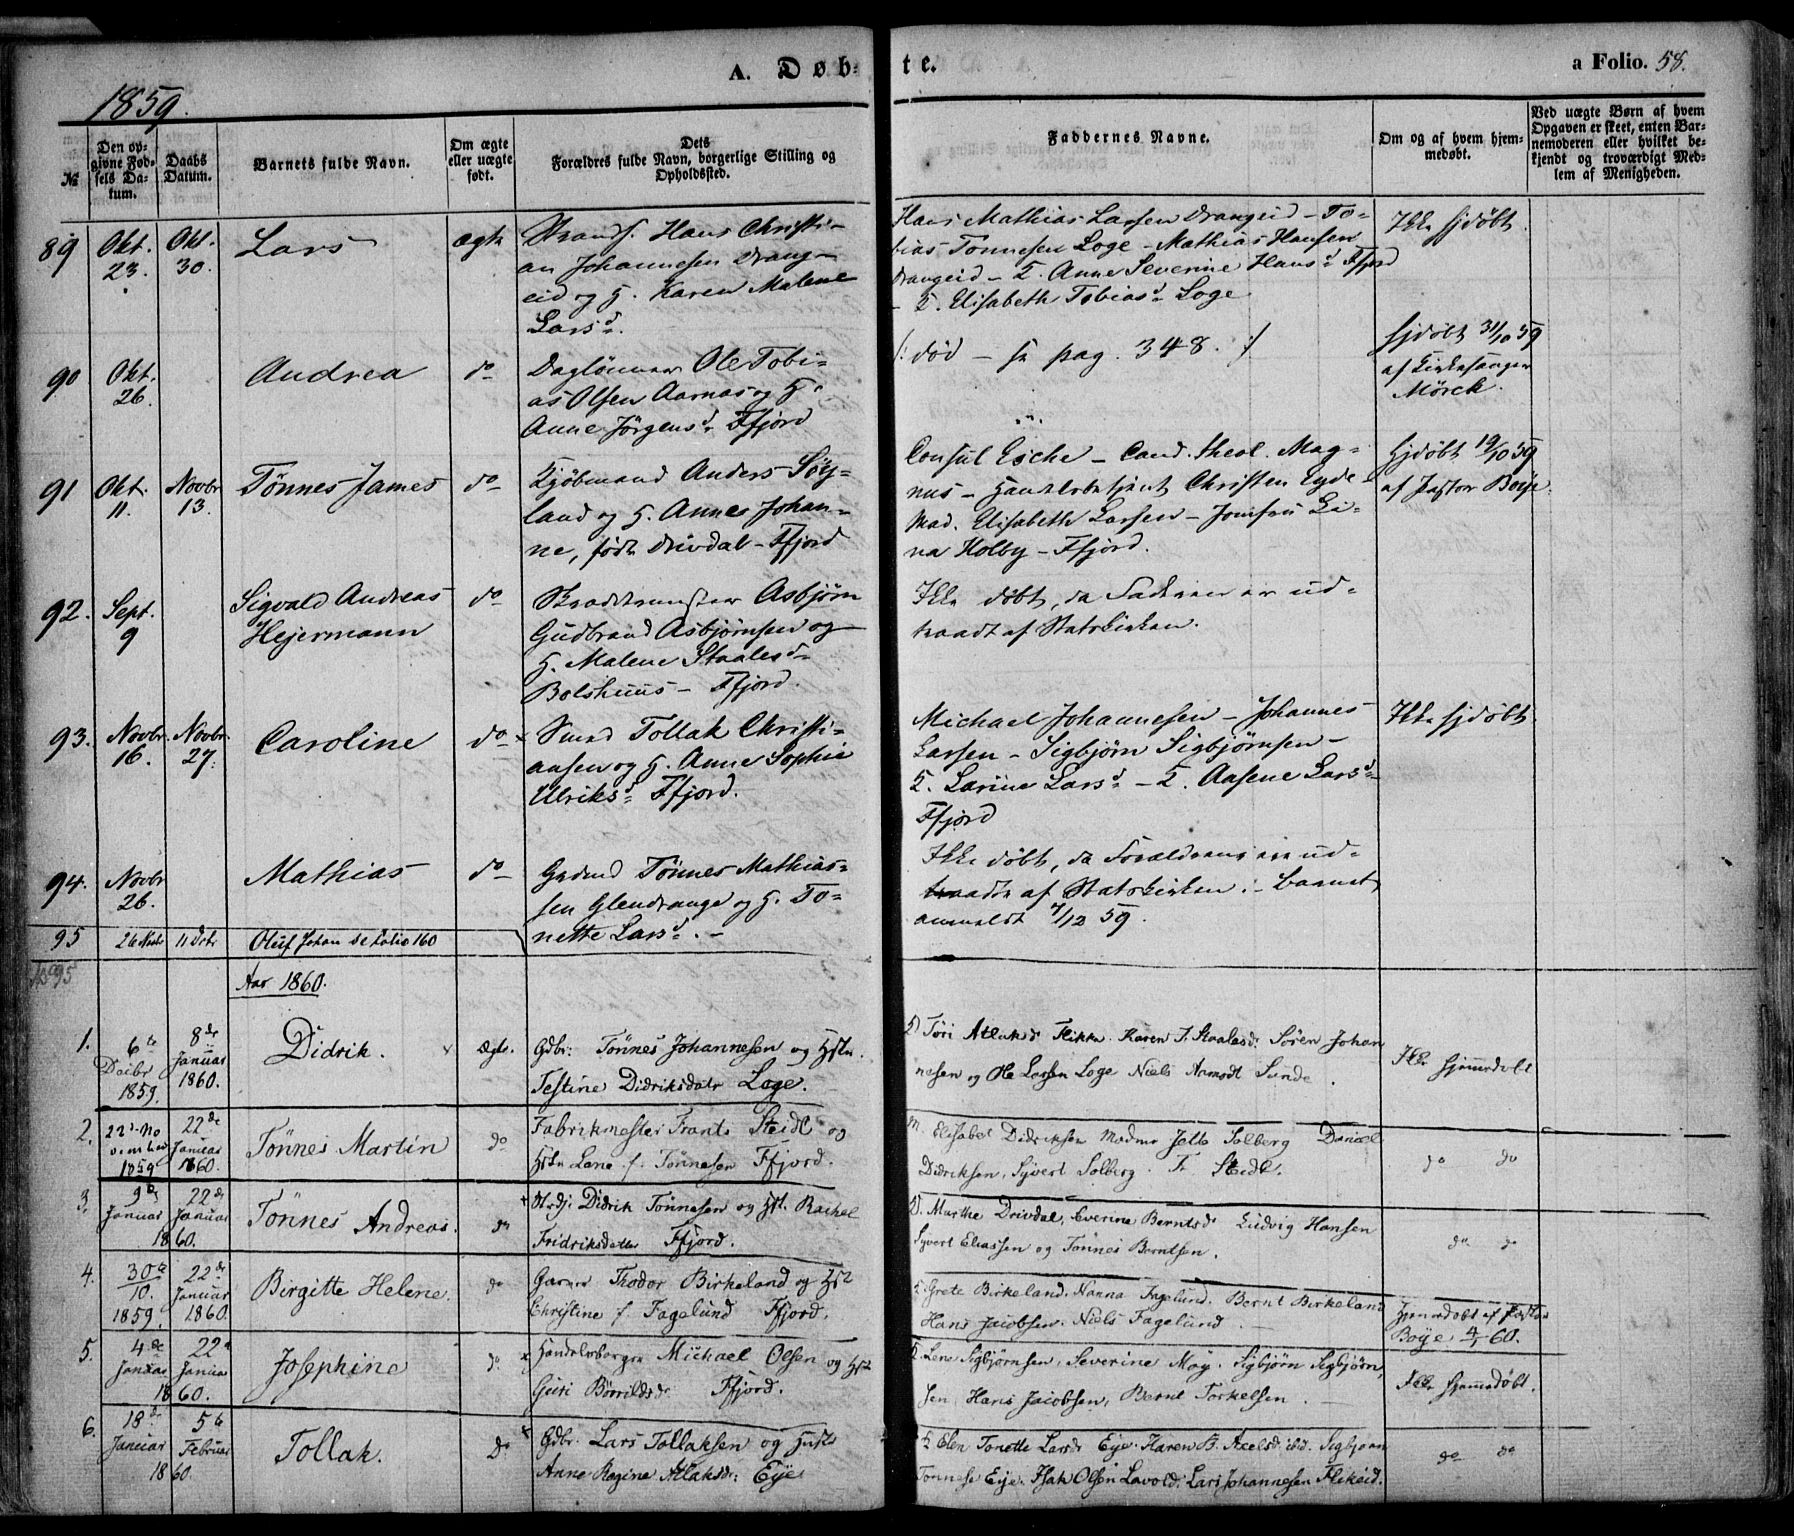 A. Døb-
te.
a Folio. 58.
1859.
№
Den op-
givne Fød-
sels Da-
tum.
Daabs
Datum.
Barnets fulde Navn.
Om ægte
eller uægte
født.
Dets
Forældres fulde Navn, borgerlige Stilling og
Opholdssted.
Faddernes Navne.
Om og af hvem hjem-
medøbt.
Ved uægte Børn af hvem
Opgaven er skeet, enten Bar-
nemoderen eller hvilket be-
kjendt og troværdigt Med-
lem af Menigheden.
89 Okt. 23. Okt. 30. Lars ægte
Strands. Hans Christi-
an Johannesen Drang-
eid og H. Karen Malene
Larsd.
Hans Mathias Larsen Drangeid - To-
bias Tønnesen Loge - Mathias Hansen
Drangeid - F. Anne Severine Hansd. Ffjord
- F. Elisabeth Tobiasd. Loge
Ikke hjdøbt.
90 Okt. 26. Andrea do
Daglønner Ole Tobi-
as Olsen Aarnas og H.
Anne Jørgensd. Ffjord
/: død - se pag. 348. :/
Hjdøbt 31/10 59
af Kirkesanger
Mørck.
91 Okt. 11. Novbr 13. Tønnes James do
Kjøbmand Anders Søy-
land og H. Annes Johan-
ne, født Drivdal - Ffjord
Consul Esche - Cand. theol. Mag-
nus - Handelsbetjent Christen Eyde
Mad. Elisabeth Larsen - Jomfru Li-
na Holby - Ffjord.
Hjdøbt 19/10 59
af Pastor Boye.
92. Sept. 9
Sigvald Andreas
Hejermann
do
Asbjørn
Gudbrand Asbjørnsen og
H. Malene Staalesd.
Bolshuus - Ffjord.
Ikke døbt, da Faderen er ud-
traadt af Statskirken.
93. Novbr. 16. Novbr. 27. Caroline do
Smed Tollak Christi-
ansen og H. Anne Sophie
Ulriksd. Ffjord.
Michael Johannesen - Johannes
Larsen - Sigbjørn Sigbjørnsen -
F. Larine Larsd. - F. Aasene Larsd.
Ffjord
Ikke hjdøbt.
94. Novbr 26. Mathias do
Gdmd Tønnes Mathias-
sen Glendrange og H. To-
nette Larsd. -
Ikke døbt, da Forældrene ere ud-
traadte af Statskirken. - Barnet
anmeldt 7/12 59.
95 26 Novbr 11 Decbr Oluf Johan se folio 160
No 95
Aar 1860.
1. 6te Decbr 1859. 8de Januar 1860. Didrik. Ægte.
Gdbr. Tønnes Johannesen og Hstu.
Testine Didriksdatr Loge.
Tøri Atlaksd Flikka. Karen T. Staalesd. Søren Johan
nesen og Ole Larsen Loge Niels Aamodt Sunde.
Ikke hjemmedøbt
2. 22d. No vember 1859 22de Januar 1860. Tønnes Martin do
Fabrikmester Frants Steidl og
Hstu Lene f. Tønnesen Ffjord.
M. Elisabet Didriksen Madme Jette Solberg Daniel
Didriksen, Syvert Solberg. F. Steidl.
do do
3. 9de Januar 22de Januar 1860. Tønnes Andreas. do
Strdj. Didrik Tønnesen og Hst. Rachel
Fridriksdatter Ffjord.
D. Marthe Drivdal, Everine Berntsd. Ludvig Hansen
Syvert Eliassen og Tønnes Berntsen.
do do
4. 30te 10. 1859. 22de Januar 1860. Birgitte Helene. do
Garver Thodor Birkeland og Hst
Christine f. Fagelund Ffjord.
F. Grete Birkeland. Nanna Fagelund. Bernt Birkeland
Hans Jacobsen. Niels Fagelund.
Hjemmedøbt af Pastor
Boye 4/1 60.
5. 4de Januar 22de Januar 1860. Josephine do
Handelsborger Michael Olsen og Hst
Guri Børrildsdr Ffjord.
F. Lene Sigbjørnsen, Severine Moy. Sigbjørn Sigbjørn,
sen, Hans Jacobsen, Bernt Torkelsen
Ikke hjemmedøbt.
6. 18de Januar 5te Februar 1860. Tollak. do
Gdbr. Lars Tollaksen og Hust
Anne Regine Atlaksdr: Eye
F. Elen Tonette Larsdr Eye. Karen B. Axelsd ibid. Sigbjørn
Tønnese Eye. Isak Olsen Lavold. Lars Johannesen Flikeid.
do do